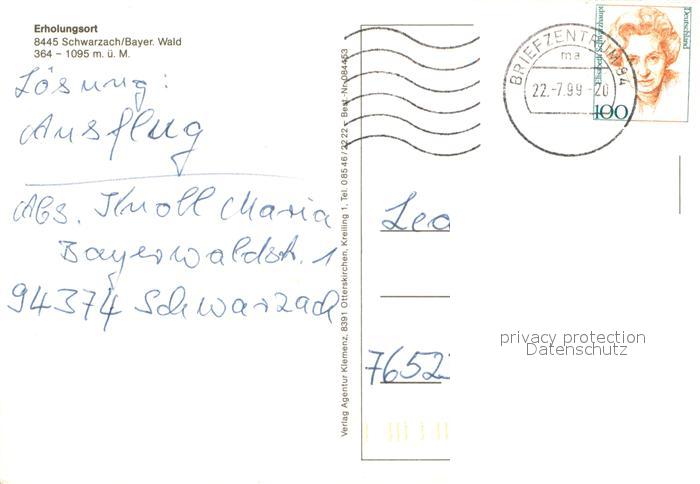 Erholungsort
8445 Schwarzach/Bayer. Wald
364 – 1095 m. ü. M.
Lösung:
Ausflug
Abs. Knoll Maria
Bayerwaldstr. 1
94374 Schwarzach
Verlag Agentur Klemenz, 8391 Otterskirchen, Kreiling 1, Tel. 08546/2222 – Best.-Nr. 084453
BRIEFZENTRUM 94
ma
22.-7.99-20
Deutschland
100
Lea
7652
privacy protection
Datenschutz